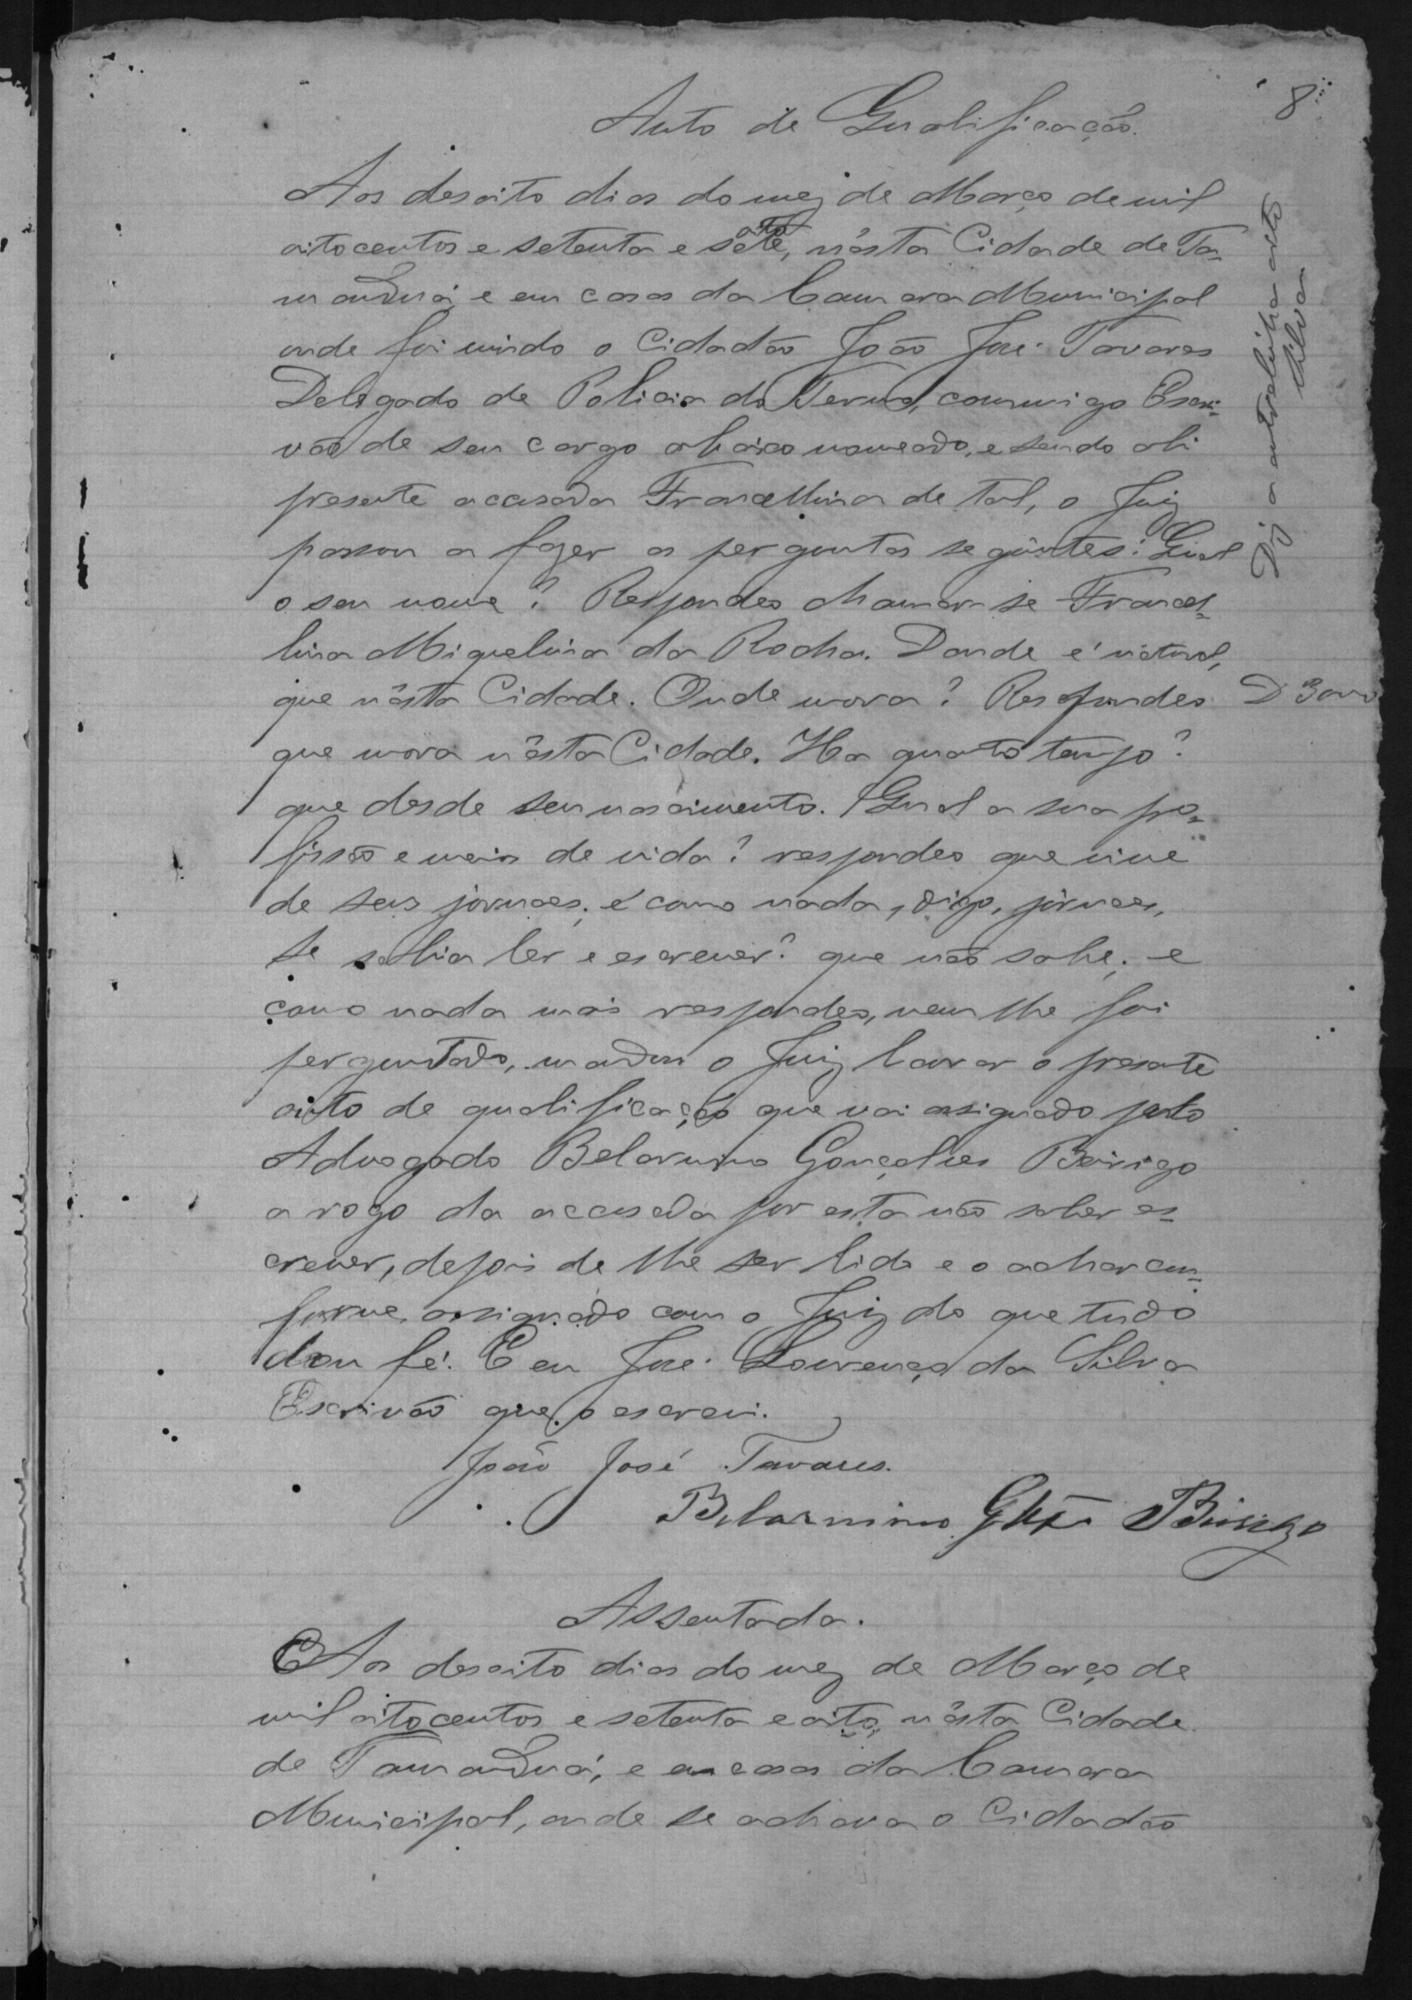 8
Auto de Qualificação.
Aos desoito dias do mez de Março de mil
oitocentos e setenta e sete, oito nésta Cidade de Ta-
manduá, e em casas da Camara Municipal
onde foi vindo o Cidadão João José Tavares
Delegado de Policia do Termo, commigo Escri-
vão de seu cargo abaixo nomeado, e sendo ahi
presente a acusada Francellina de tal, o Juiz
passou a fazer as perguntas seguintes: Qual
o seu nome? Respondeo chamar-se Francel-
lina Miguelina da Rocha. Donde é natural,
que nésta Cidade. Onde mora? Respondeo
que mora nésta Cidade. Ha quanto tempo?
que desde seu nascimento. Qual a sua pro-
fissão e meios de vida? respondeo que vive
de seus jornaes, e como nada, digo, jornaes,
se sabia ler e escrever? que não sabe; e
como nada mais respondeo, nem lhe foi
perguntado, mandou o Juiz lavrar o presente
auto de qualificação que vai assignado pelo
Advogado Belarmino Gonçalves Beirigo
a rogo da accusada por esta não saber es-
crever, depois de lhe ser lido e o achar con-
forme, assignado com o Juiz do que tudo
dou fé. E eu José Lourenço da Silva
Escrivão que o escrevi.
João José Tavares.
Belarmino Glz Beirigo
Assentada.
Aos desoito dias do mez de Março de
mil oitocentos e setenta e oito, nésta Cidade
de Tamanduá, e em casas da Camara
Municipal, onde se achava o Cidadão
Diz a entrelinha oito
Silva